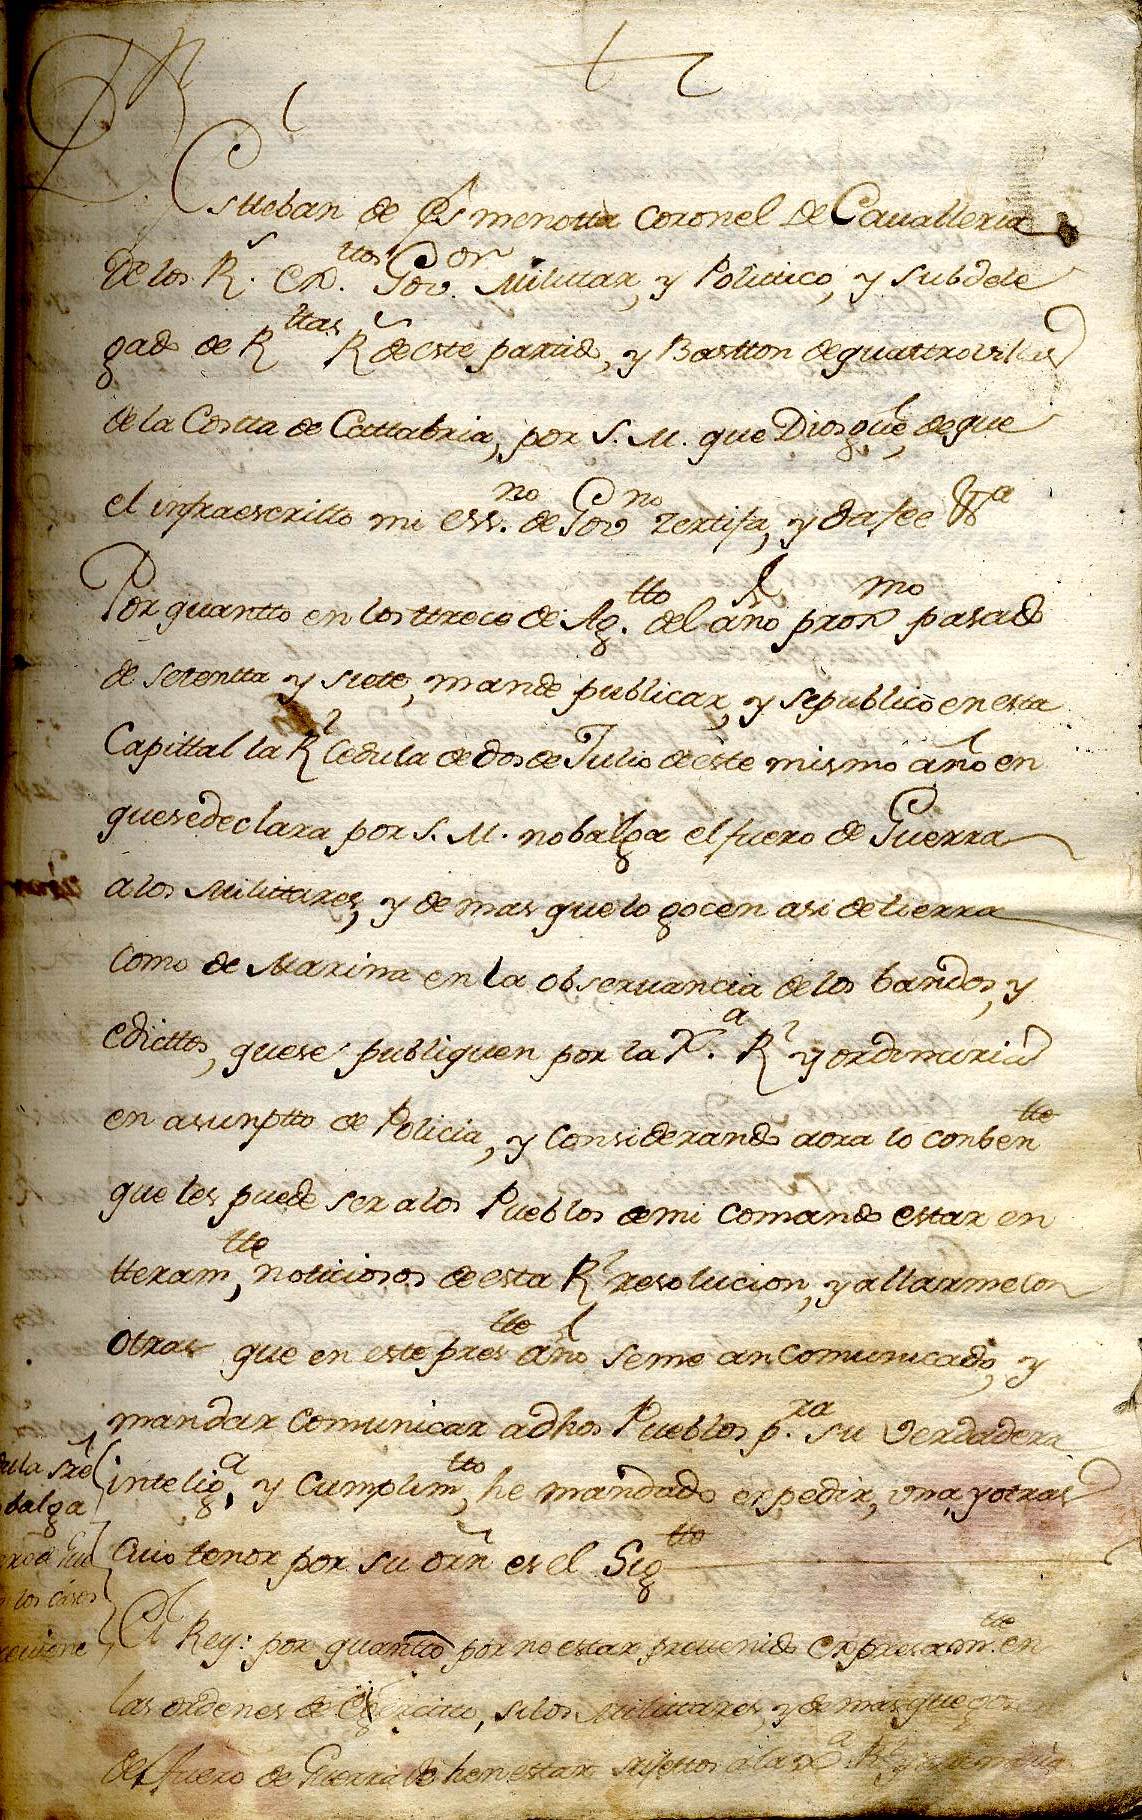 Dn
Estteban de Esmenotta Coronel De Cauallería
de los Rs. Exttos. Govor Militar, y Político, y subdele
gado de Rttas Rs de este partido, y Bastton de quattro villas
de la Costta de Cattabria, por S. M. que Dios gue, de que
el infraescritto mi essno. de Govno Zertifa, y da fee Va
Por quantto en los ttrece de Agtto. del año proxmo pasado
de setentta y siete, mande publicar, y se publicò en esta
Capittal la Rl Cedula de dos de Julio de este mismo año en
que se declara por S. M. no balga el fuero de Guerra
a los Milittares, y demas que lo gocen asi de tierra
como de Marina en la obseruancia de los bandos, y
edicttos, que se publiquen por la Xa. Rl y ordinaria
en asunptto de Policia, y Considerando aora lo conbentte
que les puede ser a los Pueblos de mi comando estar en
tteramtte, noticiosos de esta Rl resolucion, y allarme con
otras que en este prestte año se me an comunicado, y
mandar comunicar a dhos Pueblos pra. su verdadera
inteliga, y Cumplimtto, he mandado expedir, una, y otras
Cuio tenor por su orñ es el Sigtto
dula sre
balga
los casos
El Rey: por quantto por no estar preuenido expresamtte. en
las ordenes de Exercitto, si los Milittares, y demas que gozen
del fuero de Guerra deben estar sujettos a la Xa Rl y ordinaria